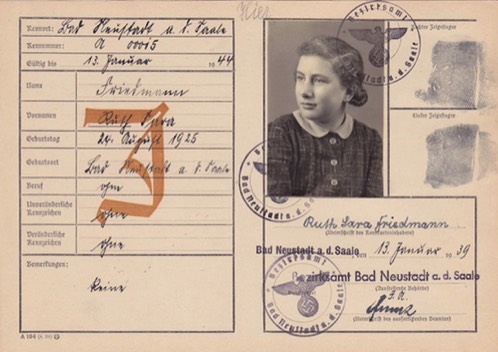 Hier
Kennort: Bad Neustadt a. d. Saale
Kennnummer: A 00015
Gültig bis 13. Januar 1944
Name Friedmann
Vornamen Ruth Sara
Geburtstag 24. August 1925
Geburtsort Bad Neustadt a. d. Saale
Beruf ohne
Unveränderliche Kennzeichen ohne
Veränderliche Kennzeichen ohne
Bemerkungen: keine
J
Bezirksamt
Bad Neustadt a. d. Saale
Rechter Zeigefinger
Linker Zeigefinger
Bezirksamt
Bad Neustadt a. d. Saale
Ruth Sara Friedmann
(Unterschrift des Kennkarteninhabers)
Bad Neustadt a. d. Saale, den 13. Januar 1939
Bezirksamt Bad Neustadt a. d. Saale
(Ausstellende Behörde)
Bezirksamt
Bad Neustadt a. d. Saale
(Unterschrift des ausfertigenden Beamten)
A 194